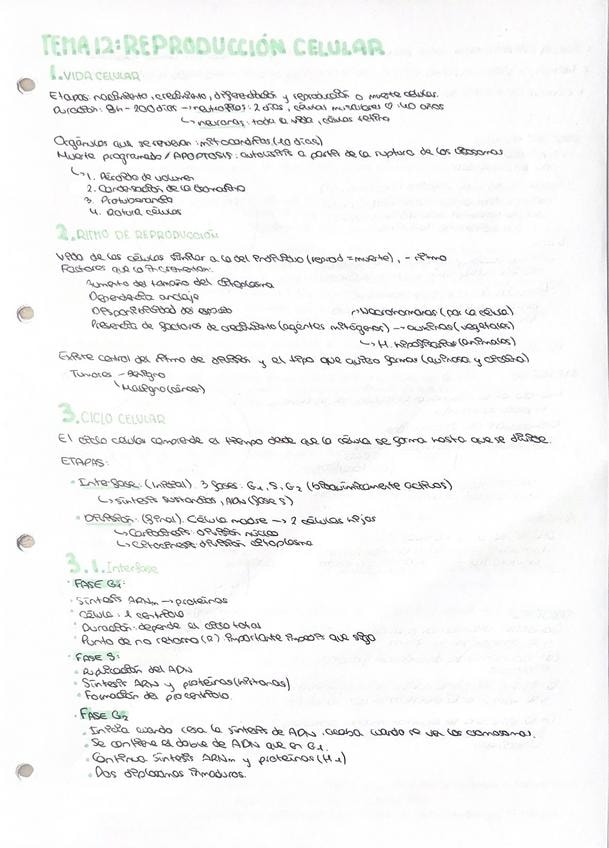 TEMA 12: REPRODUCCIÓN CELULAR
1. VIDA CELULAR
Etapas: nacimiento, crecimiento, diferenciación y reproducción o muerte celular.
Duración: 8h - 200 días → neutrófilos: 2 días, células musculares ♡: 40 años
↳ neuronas: toda la vida, células retina
Orgánulos que se renuevan: mitocondrias (10 días)
Muerte programada / APOPTOSIS: autolisis a partir de la ruptura de los lisosomas
↳ 1. Pérdida de volumen
2. Condensación de la cromatina
3. Protuberancias
4. Rotura células
2. RITMO DE REPRODUCCIÓN
Vida de las células similar a la del individuo (reprod = muerte), - ritmo
Factores que la incrementan:
Aumento del tamaño del citoplasma
Dependencia anclaje
Disponibilidad del espacio
Presencia de factores de crecimiento (agentes mitógenos) → auxinas (vegetales)
(por la célula)
↳ H. hipofisarias (animales)
Existe control del ritmo de división y el tipo que quiero formar
Tumores - Benigno
↳ Maligno (cáncer)
3. CICLO CELULAR
El ciclo celular comprende el tiempo desde que la célula se forma hasta que se divide.
ETAPAS:
• Interfase: (inicial). 3 fases: G1, S, G2 (bioquímicamente activas)
↳ síntesis sustancias, ADN (fase S)
• División: (final). Célula madre → 2 células hijas
↳ Cariocinesis: división núcleo
↳ Citocinesis: división citoplasma
3.1. Interfase
• FASE G1:
• Síntesis ARNm → proteínas
• Célula: 1 centriolo
• Duración: depende el ciclo total
• Punto de no retorno (R) importante impedir que siga
• FASE S:
• Replicación del ADN
• Síntesis ARN y proteínas (histonas)
• Formación del procentriolo.
• FASE G2
• Inicia cuando cesa la síntesis de ADN, acaba cuando se ven los cromosomas.
• Se contiene el doble de ADN que en G1.
• Continua síntesis ARNm y proteínas (H1)
• Dos diplosomas inmaduros.